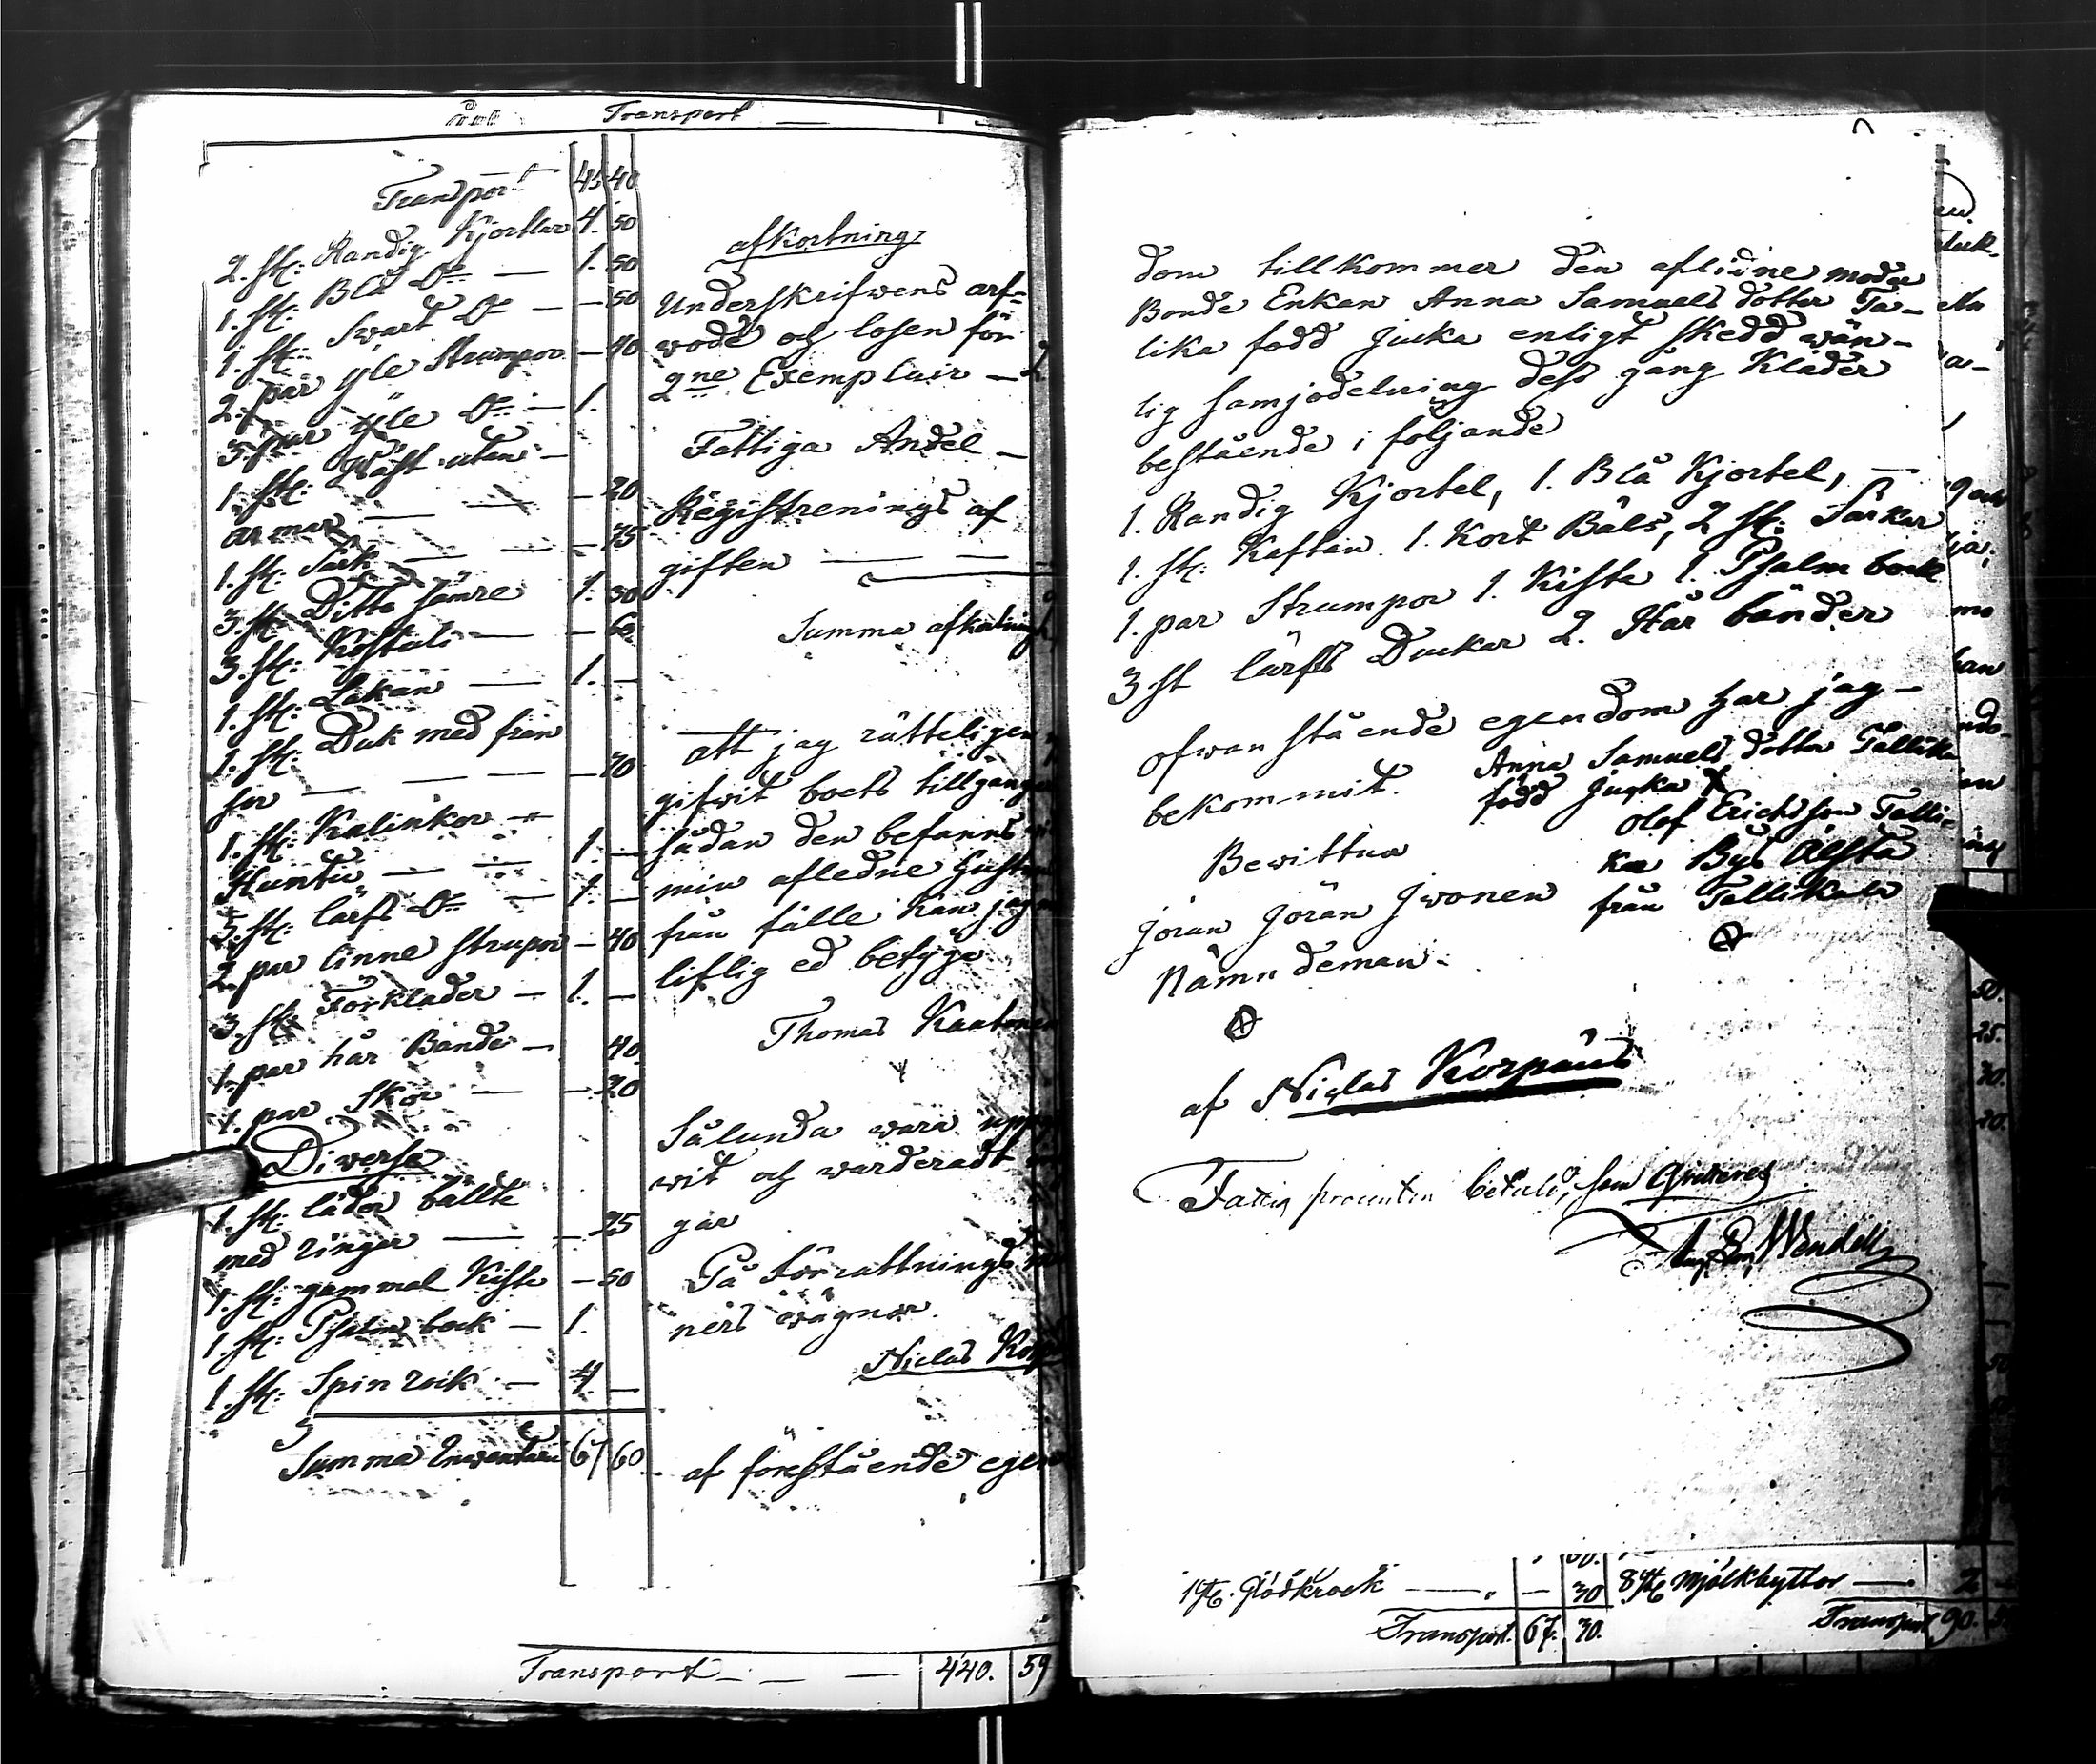 Transport
Transport 45 40
2. st: Randig Kjortlar 4. 50
1. st: Blå Do 1. 50
1. st: Swart Do — 50
2. par yle Strumpor — 40
3. par yle Do 1.
1. st: Wäst utan
armar — 20
1. st: Sark — 75
3. st: Ditto sämre 1. 30
3. st: — 60
1. st: Lakan 1. —
1. st: Duk med fran
sor — 70
1. st: Kalinkor
Huntu 1. —
3. st: lärfts Do 1. —
2. par linne strupor — 40
3. st: Förklader 1. —
1. par hår Bande 40
1. par Skor — 20
Diverse
1. st: läder bällte
med ringar — 25
1. st: gammal Kista — 50
1. st: Psalm bok 1.
1. st: Spin rock 4 —
Summa Inventarii 67 60
afkortning
Underskrifwens arf-
wode och losen för
2ne Exemplair — 2
Fattiga Andel —
Registrerings af
giften
Summa afkortning
Att jag rätteligen
gifwit boets tillgång
sådan den befanns
min afledne Hustru
från fälle kan jag
liflig ed betyga
Thomas
Sålunda wara upp
wit och warderadt
gar
På Förrattnings
ners wägnar
Niclas
af förestående egen
Transport 440. 59
dom tillkommer den aflidne moder
Bonde Enkan Anna Samuels dotter Ta-
lika född Jucka enligt skedd wän-
lig samjodelning dess gång Kläder
bestående i foljande
1. Randig Kjortel, 1. Blå Kjortel,
1. st: Kaftan 1. Kort Bäls, 2 st: Särkar
1. par Strumpor 1. Kista 1. Psalm bock
3 st lärfts Duckar 2. Hår bänder
ofwan stående egendom har jag
bekommit. Anna Samuels dotter Tallik
född Jucka X
Bewittna Olof Erichsson Talli-
ka Bys
Jöran Jöran Jwonen från Tallikala
Nämndeman
af Niclas Korpäus
Fattig procenten betald, som Qvitteras
Wendell
1 st. Glödkrock — 30 8 st. Mjölkbyttor 2
Transport 67. 30. Transport 90.